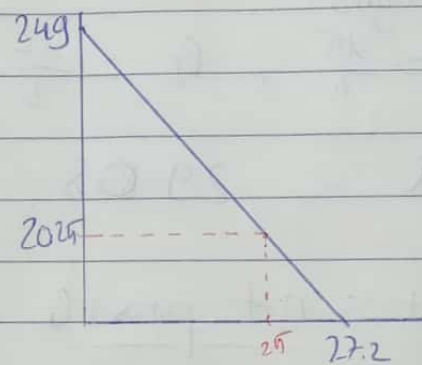 249
2025
25
27.2